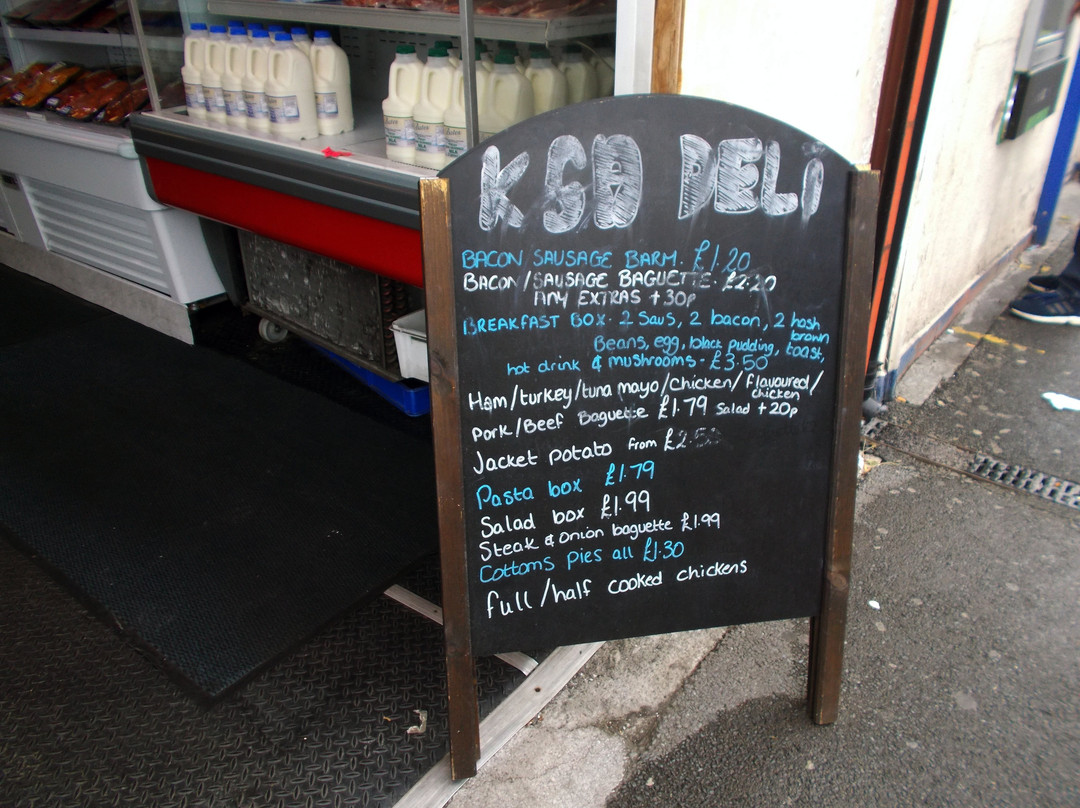 K&A DELI
BACON/SAUSAGE BARM. £1.20
BACON/SAUSAGE BAGUETTE. £2.20
ANY EXTRAS +30p
BREAKFAST BOX. 2 Saus, 2 bacon, 2 hash
brown
Beans, egg, black pudding, toast,
hot drink & mushrooms - £3.50
Ham/turkey/tuna mayo/chicken/flavoured/
chicken
Pork/Beef Baguette £1.79 Salad +20p
Jacket potato from
Pasta box £1.79
Salad box £1.99
Steak & onion baguette £1.99
Cottoms pies all £1.30
full/half cooked chickens